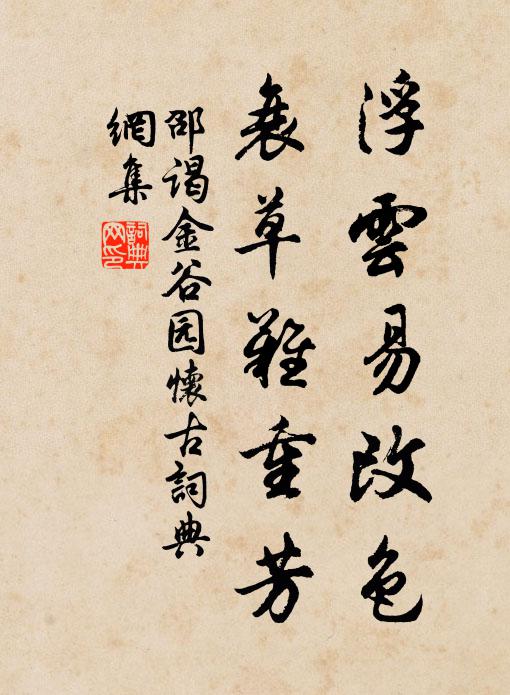 浮雲易改色
衰草難重芳
邵谒金谷园懷古詞典
網集
詞典
网印